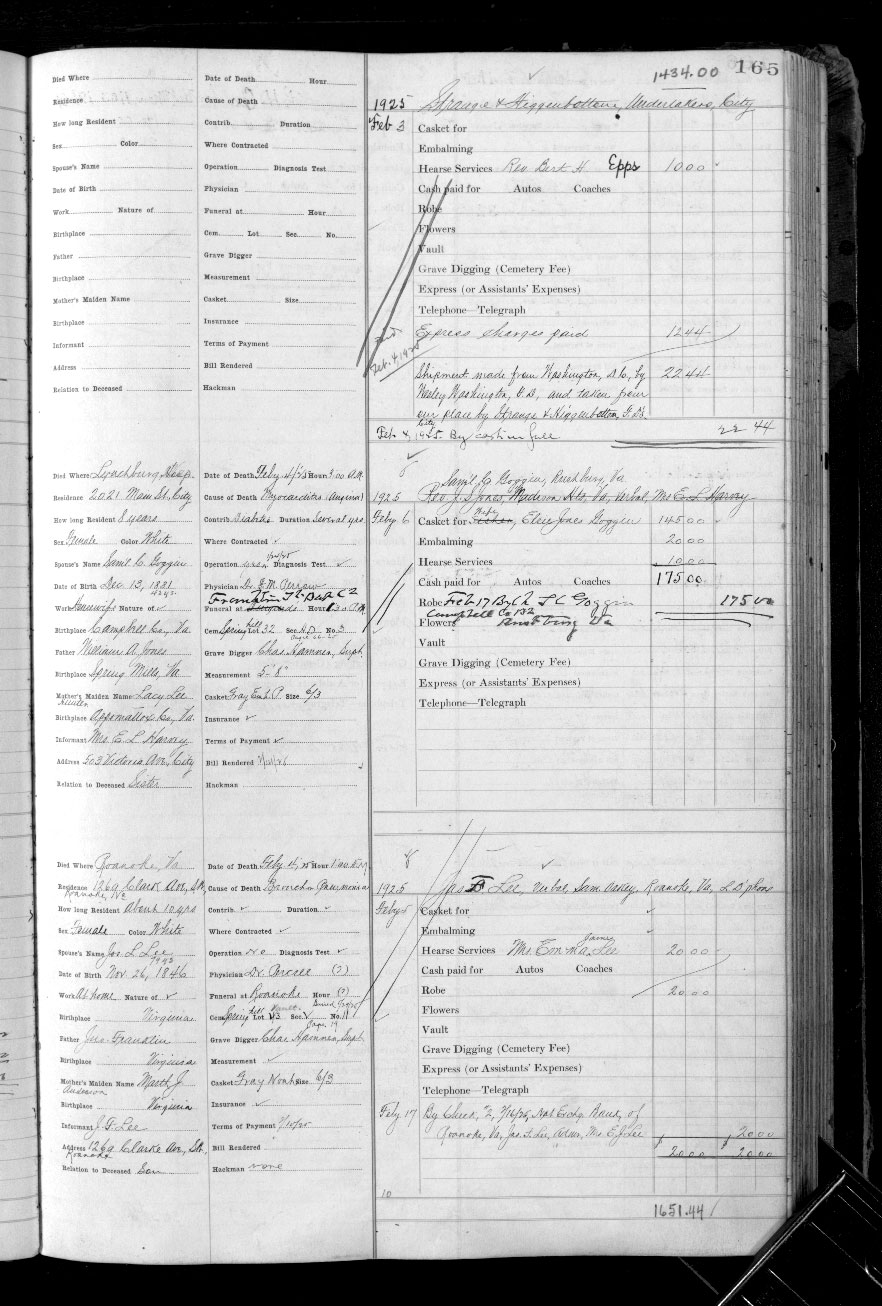 165
1434.00
Died Where
Residence
How long Resident
Sex Color
Spouse's Name
Date of Birth
Work Nature of
Birthplace
Father
Birthplace
Mother's Maiden Name
Birthplace
Informant
Address
Relation to Deceased
Date of Death Hour
Cause of Death
Contrib. Duration
Where Contracted
Operation Diagnosis Test
Physician
Funeral at Hour
Cem. Lot Sec. No.
Grave Digger
Measurement
Casket Size
Insurance
Terms of Payment
Bill Rendered
Hackman
1925 Strange & Higgenbottom, Undertakers, City
Feb 3 Casket for
Embalming
Hearse Services Rev Bert H Epps 10 00
Cash paid for Autos Coaches
Robe
Flowers
Vault
Grave Digging (Cemetery Fee)
Express (or Assistants' Expenses)
Telephone—Telegraph
Paid Feb. 4, 1925
Express charges paid 12 44
Shipment made from Washington, D.C., by 22 44
Wesley Washington, F.D., and taken from
our place by Strange & Higgenbotton, F.D's.
City
Feb 4, 1925. By cash in full 22 44
Died Where Lynchburg Hosp.
Residence 2021 Main St, City
How long Resident 8 years
Sex Female Color White
Spouse's Name Saml C. Goggin
Date of Birth Dec 13, 1881
Work Housewife Nature of
Birthplace Campbell Co, Va
Father William A. Jones
Birthplace Spring Mills, Va
Mother's Maiden Name Lacy Lee
Birthplace Appomattox Co, Va
Informant Mrs. E. L. Harvey
Address 503 Victoria Ave, City
Relation to Deceased Sister
Date of Death Feby 4/25 Hour 3:00 A.M.
Cause of Death Myocarditis (Angina)
Contrib. Diabetes Duration Several yrs
Where Contracted
Operation Diagnosis Test
Physician Dr. G. M. Perrow
Funeral at Hour
Cem. Spring Hill Lot 32 Sec. No. 3
Grave Digger Chas. Hamner, Supt.
Measurement 5'-8"
Casket Gray Emb. P. Size 6/3
Insurance
Terms of Payment
Bill Rendered
Hackman
Saml C. Goggin, Rustburg, Va
1925 Rev. J. S. Jones, Madison Hts, Va, Verbal, Mrs E. L. Harvey
Feby 6 Casket for Elsie Jones Goggin 145 00
Embalming 20 00
Hearse Services 10 00
Cash paid for Autos Coaches 175 00
Robe Feb 17 By Ch S C Goggin 175 00
Campbell Co
Flowers Rustburg Va
Vault
Grave Digging (Cemetery Fee)
Express (or Assistants' Expenses)
Telephone—Telegraph
Died Where Roanoke, Va.
Residence 1269 Clark Ave, S.W,
Roanoke, Va
How long Resident About 10 yrs
Sex Female Color White
Spouse's Name Jas. L. Lee
Date of Birth Nov 26, 1846
Work At home Nature of
Birthplace Virginia
Father Jno. Franklin
Birthplace Virginia
Mother's Maiden Name Marth J.
Anderson
Birthplace Virginia
Informant J. F. Lee
Address 1269 Clarke Ave, S.W.,
Roanoke
Relation to Deceased Son
Date of Death Feby 4, 25 Hour
Cause of Death Broncho Pneumonia
Contrib. Duration
Where Contracted
Operation No Diagnosis Test
Physician Dr. (?)
Funeral at Roanoke Hour (?)
Cem. Spring Hill Lot Sec. No.
Grave Digger Chas Hamner, Supt.
Measurement
Casket Gray Size 6/3
Insurance
Terms of Payment
Bill Rendered
Hackman none
1925 Jas F. Lee, Verbal, Sam Oakey, Roanoke, Va, L D phone
Feby 5 Casket for
Embalming
Hearse Services Mrs Emma James Lee 20 00
Cash paid for Autos Coaches
Robe 20 00
Flowers
Vault
Grave Digging (Cemetery Fee)
Express (or Assistants' Expenses)
Telephone—Telegraph
Feby 17 By Check, Natl Exchg. Bank, of
Roanoke, Va, Jas. F. Lee, Mrs E. J. Lee 20 00
20 00 20 00
10
1651.44